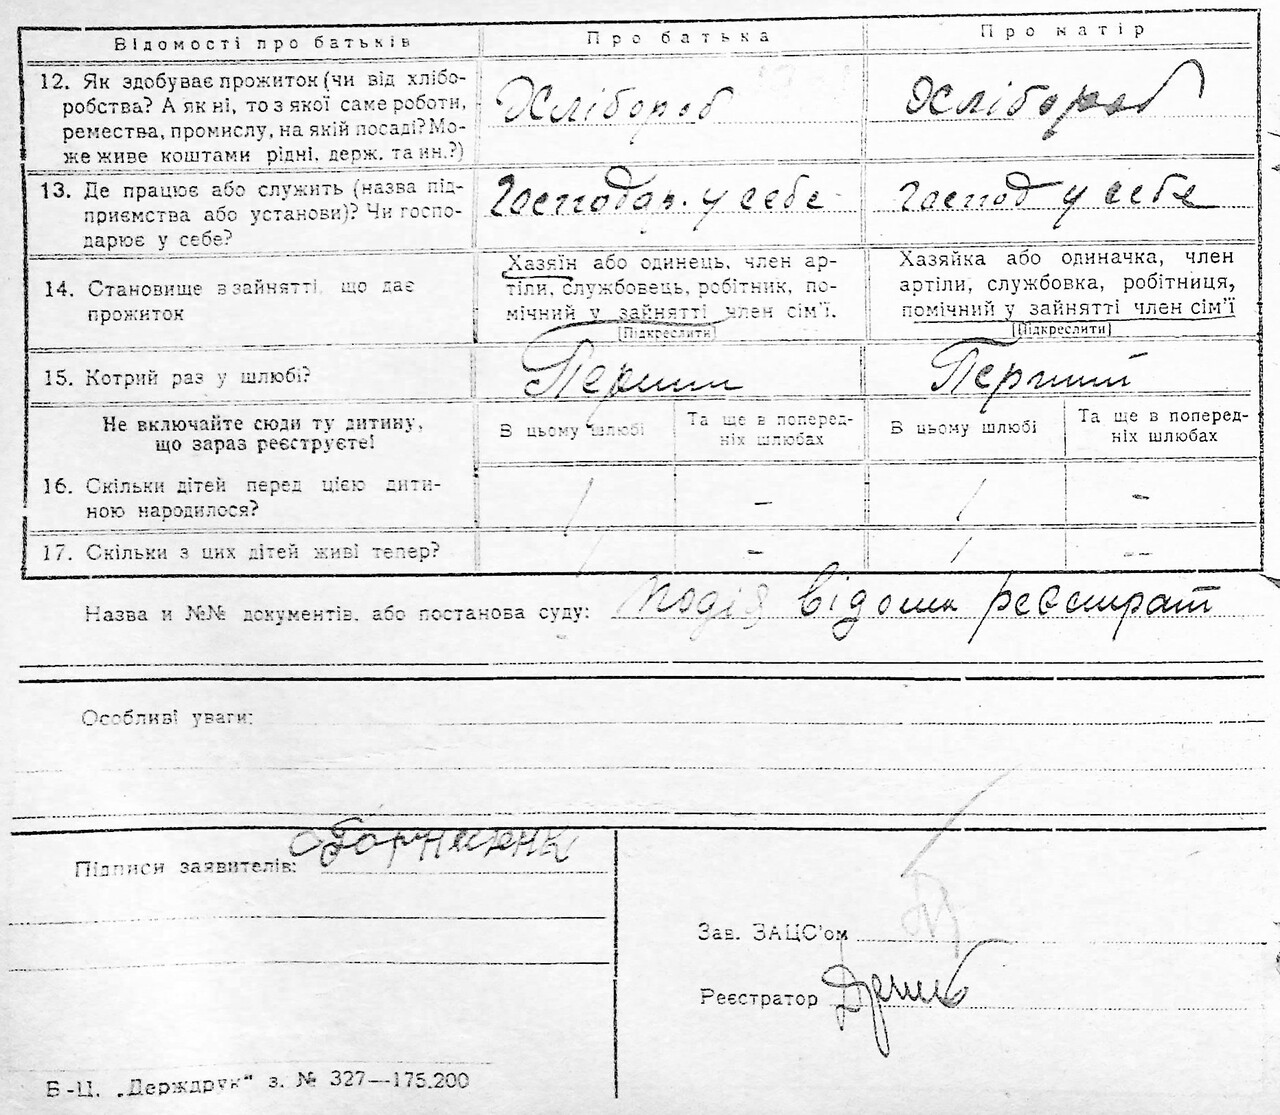 Відомості про батьків Про батька Про матір
12. Як здобуває прожиток (чи від хлібо-
робства? А як ні, то з якої саме роботи,
ремества, промислу, на якій посаді? Мо-
же живе коштами рідні, держ. та ин.?)
Хлібороб Хлібороб
13. Де працює або служить (назва під-
приємства або установи)? Чи госпо-
дарює у себе?
Господар. у себе Господ у себе
14. Становище в зайнятті, що дає
прожиток
Хазяїн або одинець, член ар-
тіли, службовець, робітник, по-
мічний у зайнятті член сім'ї.
[Підкреслити]
Хазяйка або одиначка, член
артіли, службовка, робітниця,
помічний у зайнятті член сім'ї
[Підкреслити]
15. Котрий раз у шлюбі? Перший Перший
Не включайте сюди ту дитину,
що зараз реєструєте!
В цьому шлюбі Та ще в поперед-
ніх шлюбах В цьому шлюбі Та ще в поперед-
ніх шлюбах
16. Скільки дітей перед цією дити-
ною народилося?
1 – 1 –
17. Скільки з цих дітей живі тепер? 1 – 1 –
Назва и №№ документів, або постанова суду: подія відома реєстрат
Особливі уваги:
Підписи заявителів:
Зав. ЗАЦС'ом
Реєстратор
Б-Ц. „Держдрук“ з. № 327—175.200